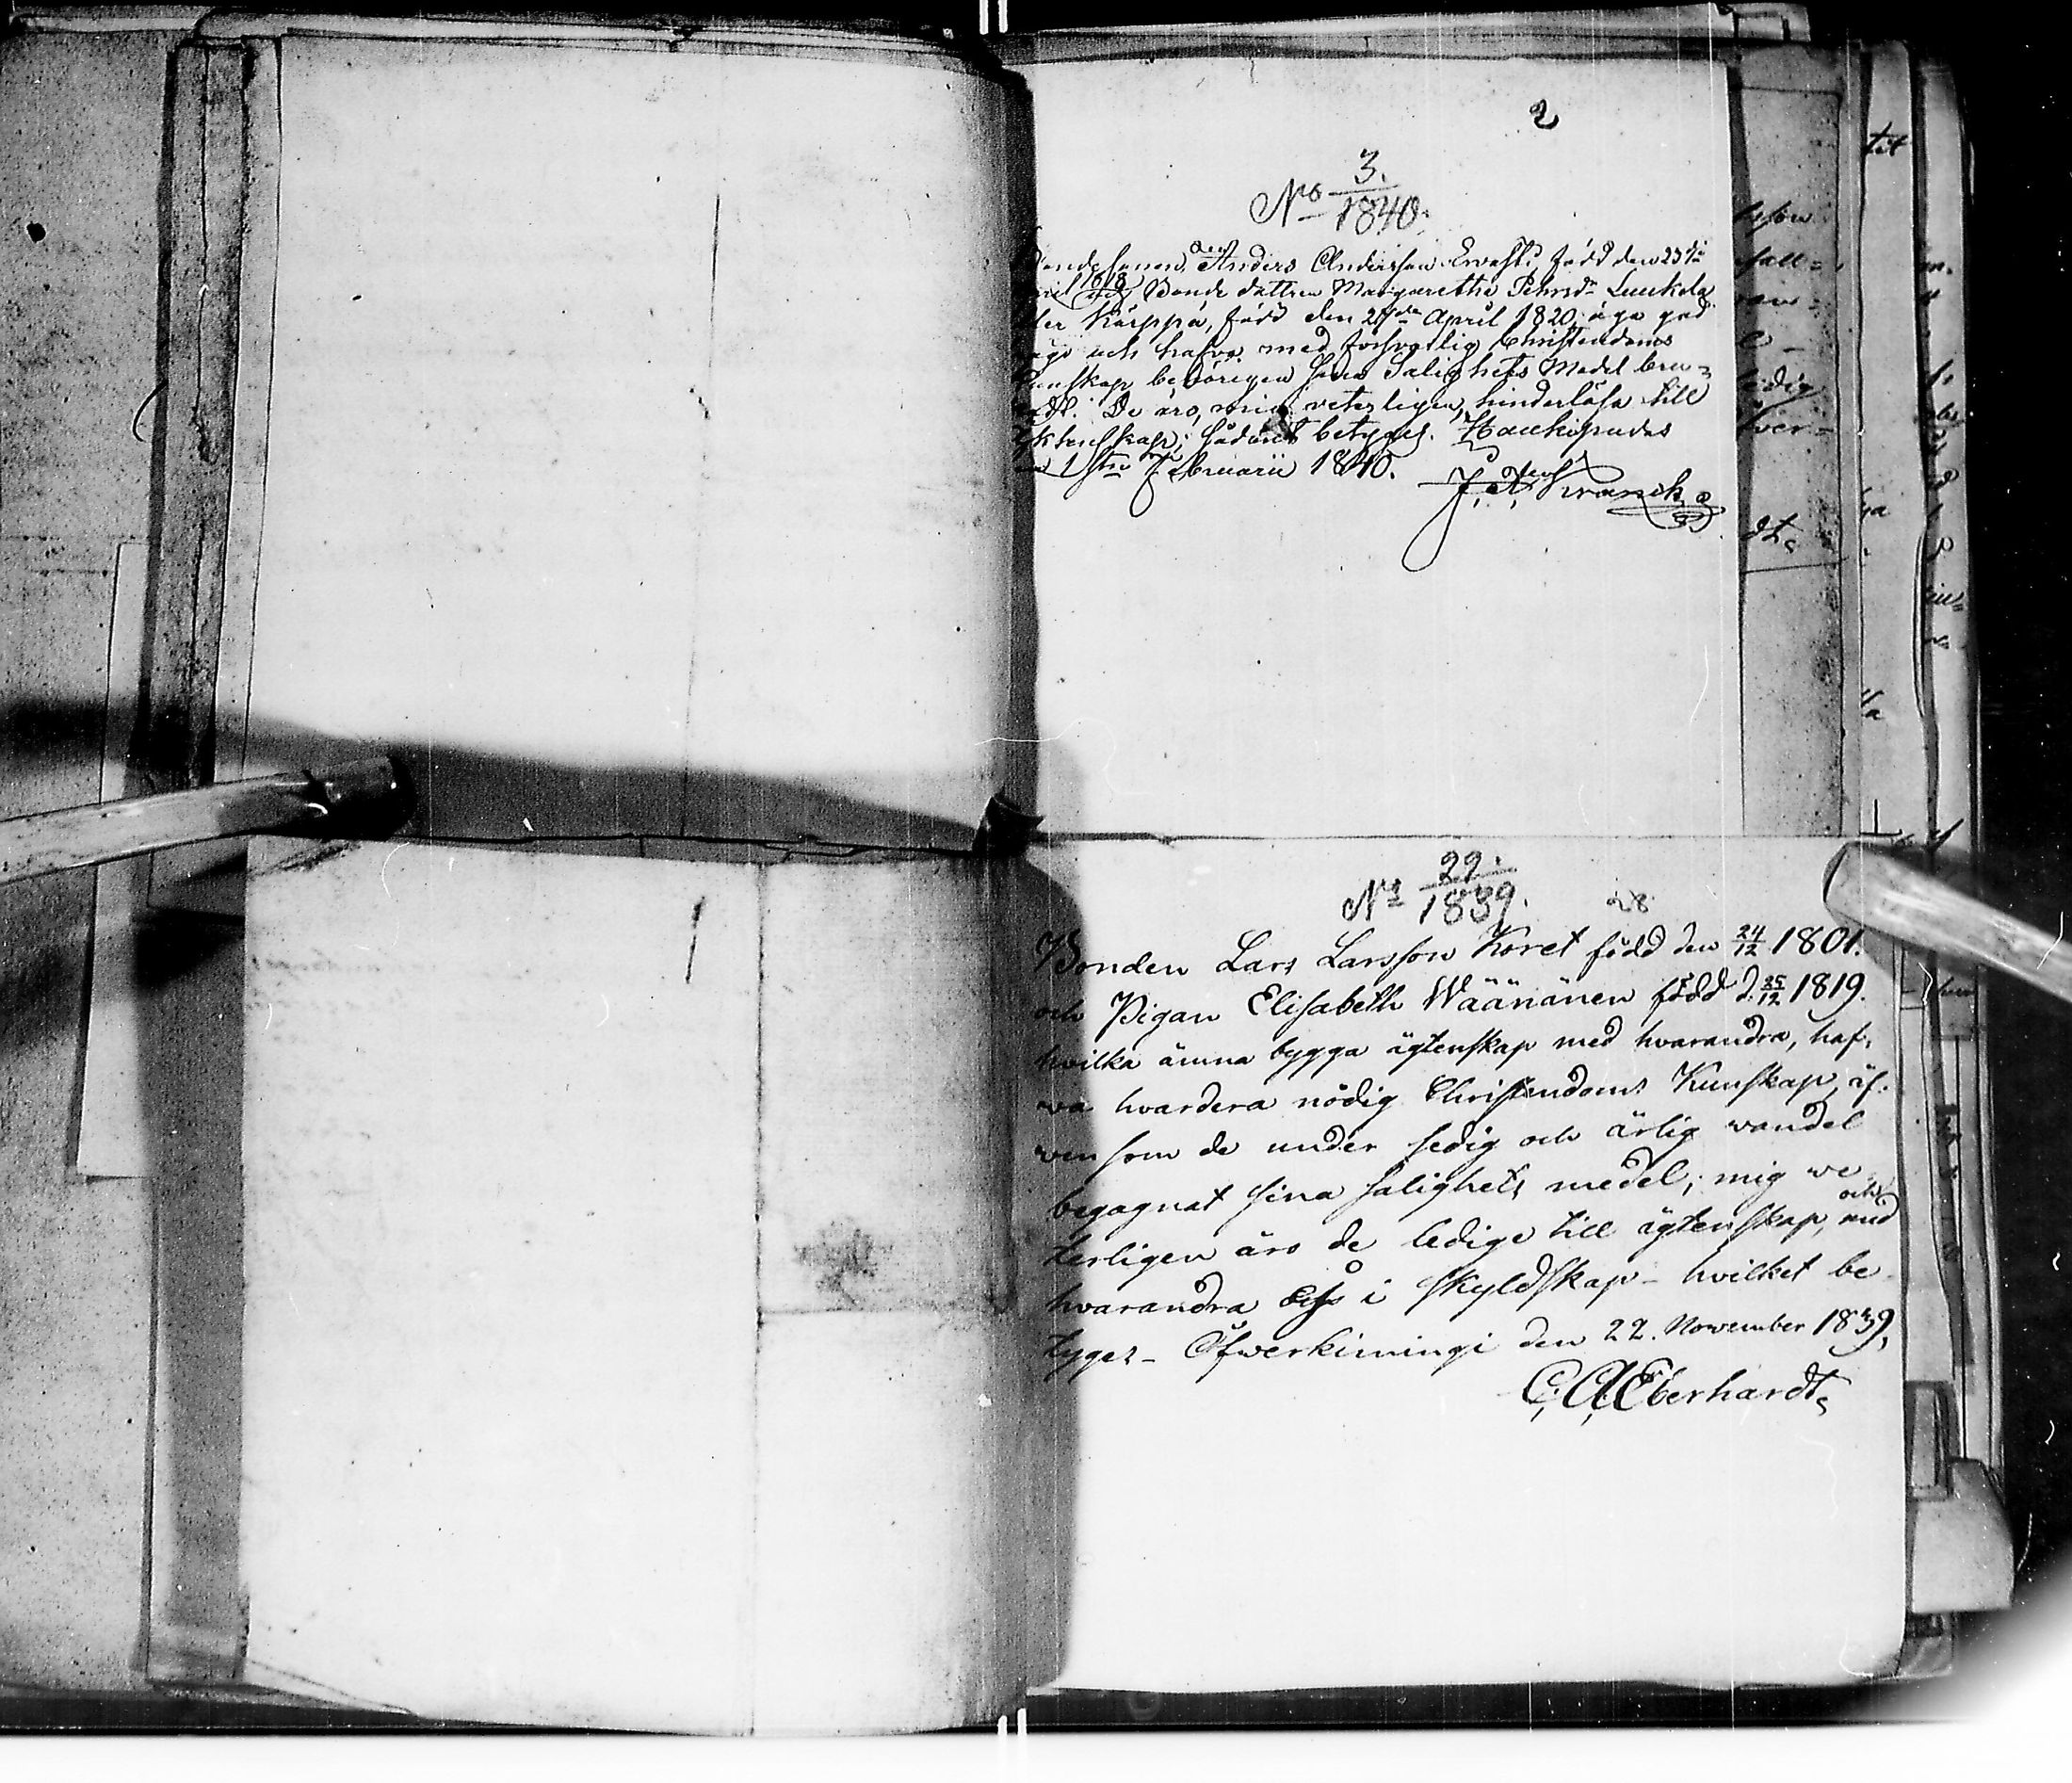 2
No 3./1840.
Bondesonen Anders Andersson Ervasti, född den 23de
1818 och Bonde dottren Margaretha Pehrsdr Luukela
eller Karppa, född den 27de April 1820, äga god
och hafva med försvarlig Christendoms
kunskap behörigen sina Salighets Medel bru-
kadt. De äro, mig veterligen, hinderlösa till
Äktenskap; sådant betygas. Haukipudas
den 1sta Februarii 1840.
J. A. Kranck
No 29./1839.
28
Bonden Lars Larsson Koret född den 24/12 1801.
och Pigan Elisabeth Wäänänen född d. 25/12 1819.
hvilka ämna bygga ägtenskap med hvarandra, haf-
va hvardera nödig Christendoms Kunskap, äf-
ven som de under sedig och ärlig vandel
begagnat sina salighets medel; mig we-
terligen äro de ledige till ägtenskap, och med
hvarandra i skyldskap - hvilket be-
tyges - Öfwerkiimingi den 22. November 1839,
C. A. Eberhardt